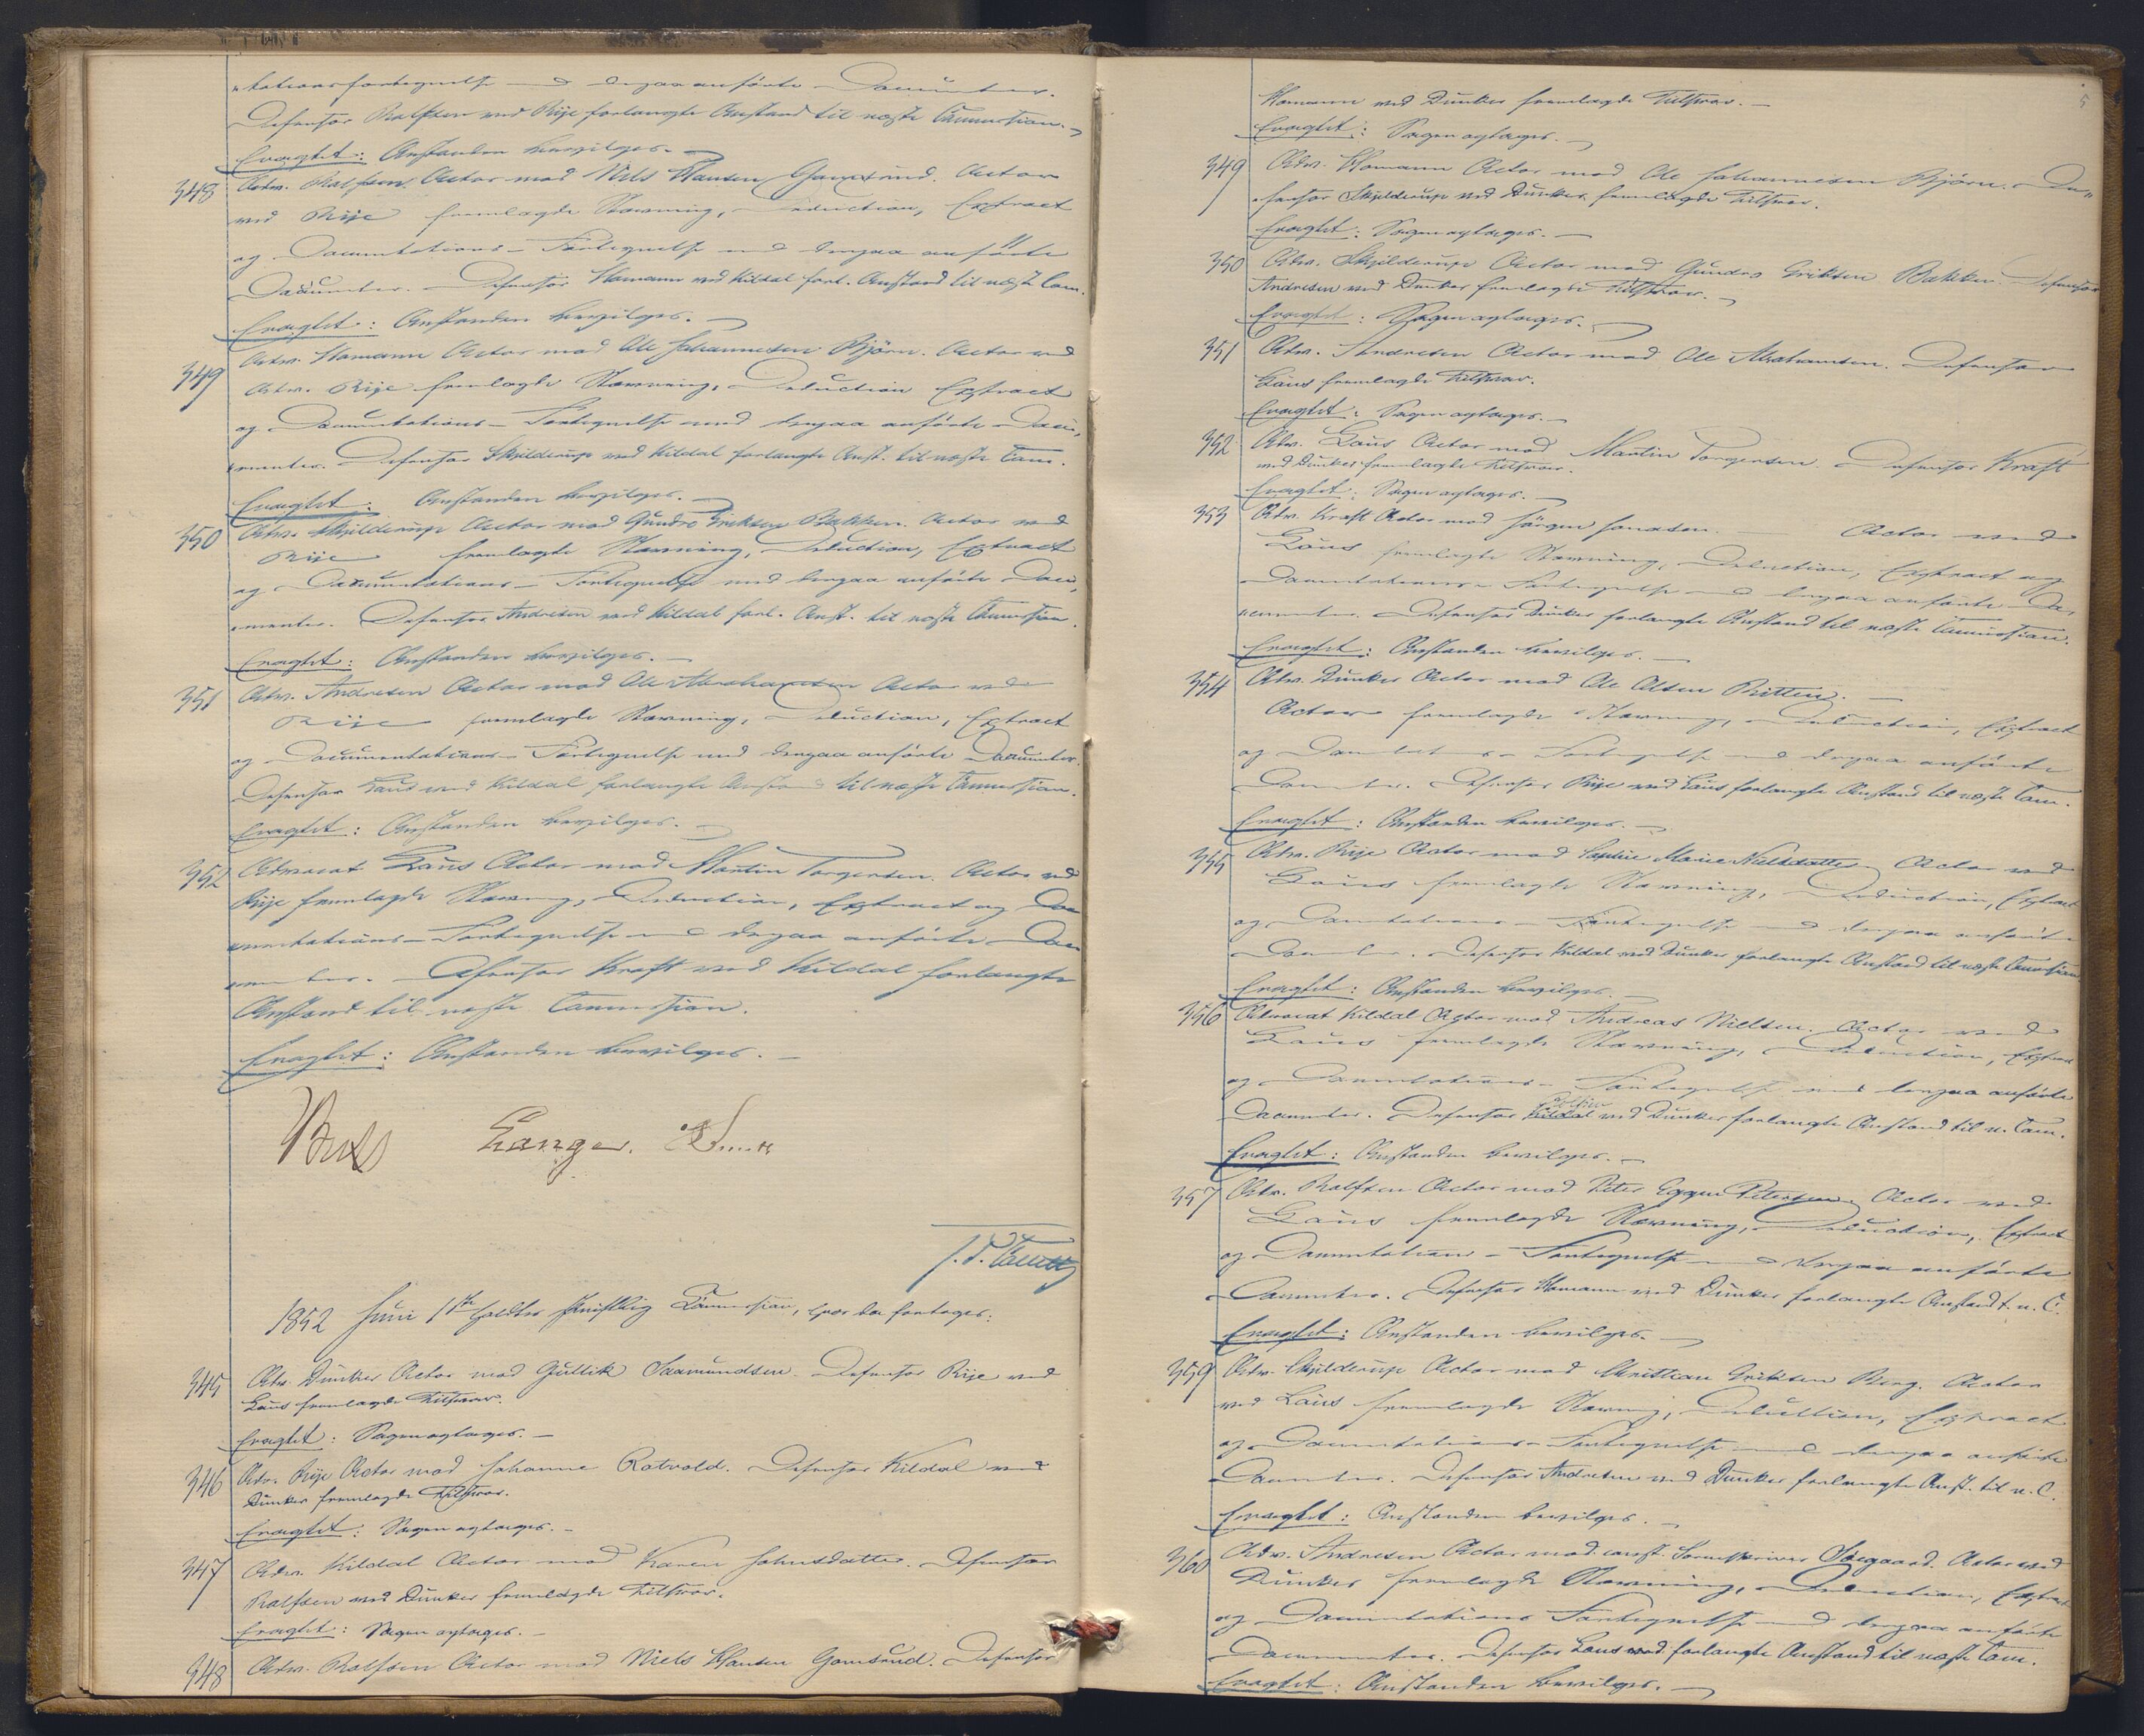 "tationsfortegnelse med derpaa anførte Documenter.
Defensor Rolfsen ved Rije forlangte Anstand til næste Commission.
Eragtet: Anstanden bevilges.
348 Adv. Rolfsen Actor mod Niels Hansen Gamsrud. Actor
ved Rije fremlagde Stævning, Deduction, Extract
og Documentations-Fortegnelse med derpaa anførte
Documenter. Defensor Homann ved Kildal forl. Anstand til næste Com.
Eragtet: Anstanden bevilges.
349 Adv. Homann Actor mod Ole Johannesen Bjørn. Actor ved
Adv. Rije fremlagde Stævning, Deduction Extract
og Documentations-Fortegnelse med derpaa anførte Docu-
"menter. Defensor Skjilderup ved Kildal forlangte Anst. til næste Com.
Eragtet: Anstanden bevilges.
350 Adv. Skjilderup Actor mod Gundro Eriksen Bakken. Actor ved
Rije fremlagde Stævning, Deduction, Extract
og Documentations-Fortegnelse med derpaa anførte Docu-
"menter. Defensor Andresen ved Kildal forl. Anst. til næste Commission.
Eragtet: Anstanden bevilges.
351 Adv. Andresen Actor mod Ole Abrahamsen Actor ved
Rije fremlagde Stævning, Deduction, Extract
og Documentations-Fortegnelse med derpaa anførte Documenter.
Defensor Lous ved Kildal forlangte Anstand til næste Commission.
Eragtet: Anstanden bevilges.
352 Advocat Lous Actor mod Martin Torgersen. Actor ved
Rije fremlagde Stævning, Deduction, Extract og Do-
cumentations-Fortegnelse med derpaa anførte Docu
menter. Defensor Kraft ved Kildal forlangte
Anstand til næste Commission.
Eragtet: Anstanden bevilges.
Lange.
1852 Juni 1ste holdtes skriftlig Commission, hvor da foretoges:
345 Adv. Dunker Actor mod Gullik Saamundsen. Defensor Rije ved
Lous fremlagde Tilsvar.
Eragtet: Sagen optages.
346 Adv. Rije Actor mod Johanne Rotvold. Defensor Kildal ved
Dunker fremlagde Tilsvar.
Eragtet: Sagen optages.
347 Adv. Kildal Actor mod Karen Johnsdatter. Defensor
Rolfsen ved Dunker fremlagde Tilsvar.
Eragtet: Sagen optages.
348 Adv. Rolfsen Actor mod Niels Hansen Gamsrud. Defensor
5
Homann ved Dunker fremlagde Tilsvar.
Eragtet: Sagen optages.
349 Adv. Homann Actor mod Ole Johannesen Bjørn. De-
"fensor Skjilderup ved Dunker fremlagde Tilsvar.
Eragtet: Sagen optages.
350 Adv. Skjilderup Actor mod Gundro Eriksen Bakken. Defensor
Andresen ved Dunker fremlagde Tilsvar.
Eragtet: Sagen optages.
351 Adv. Andresen Actor mod Ole Abrahamsen. Defensor
Lous fremlagde Tilsvar.
Eragtet: Sagen optages.
352 Adv. Lous Actor mod Martin Torgersen. Defensor Kraft
ved Dunker fremlagde Tilsvar.
Eragtet: Sagen optages.
353 Adv. Kraft Actor mod Jørgen Jonassen. Actor ved
Lous fremlagde Stævning, Deduction, Extract og
Documentations-Fortegnelse med derpaa anførte Do-
"cumenter. Defensor Dunker forlangte Anstand til næste Commission.
Eragtet: Anstanden bevilges.
354 Adv. Dunker Actor mod Ole Olsen Britten.
Actor fremlagde Stævning, Deduction, Extract
og Documentations-Fortegnelse med derpaa anførte
Documenter. Defensor Rije ved Lous forlangte Anstand til næste Com.
Eragtet: Anstanden bevilges.
355 Adv. Rije Actor mod Sophie Marie Nielsdatter. Actor ved
Lous fremlagde Stævning, Deduction, Extract
og Documentations-Fortegnelse med derpaa anførte
Documenter. Defensor Kildal ved Dunker forlangte Anstand til næste Commission
Eragtet: Anstanden bevilges.
356 Advocat Kildal Actor mod Andreas Nielsen. Actor ved
Lous fremlagde Stævning, Deduction, Extract
og Documentations-Fortegnelse med derpaa anførte
Documenter. Defensor Kildal Rolfsen ved Dunker forlangte Anstand til n. Com.
Eragtet: Anstanden bevilges.
357 Adv. Rolfsen Actor mod Peter Eggen Petersen. Actor ved
Lous fremlagde Stævning, Deduction, Extract
og Documentations-Fortegnelse med derpaa anførte
Documenter. Defensor Homann ved Dunker forlangte Anstand t. n. C.
Eragtet: Anstanden bevilges.
359 Adv. Skjilderup Actor mod Christian Eriksen Berg. Actor
ved Lous fremlagde Stævning, Deduction, Extract
og Documentations-Fortegnelse med derpaa anførte
Documenter. Defensor Andresen ved Dunker forlangte Anst. til n. C.
Eragtet: Anstanden bevilges.
360 Adv. Andresen Actor mod const. Sorenskriver Søegaard. Actor ved
Dunker fremlagde Stævning, Deduction, Extract
og Documentations Fortegnelse med derpaa anførte
Documenter. Defensor Lous ved forlangte Anstand til næste Com.
Eragtet: Anstanden bevilges.